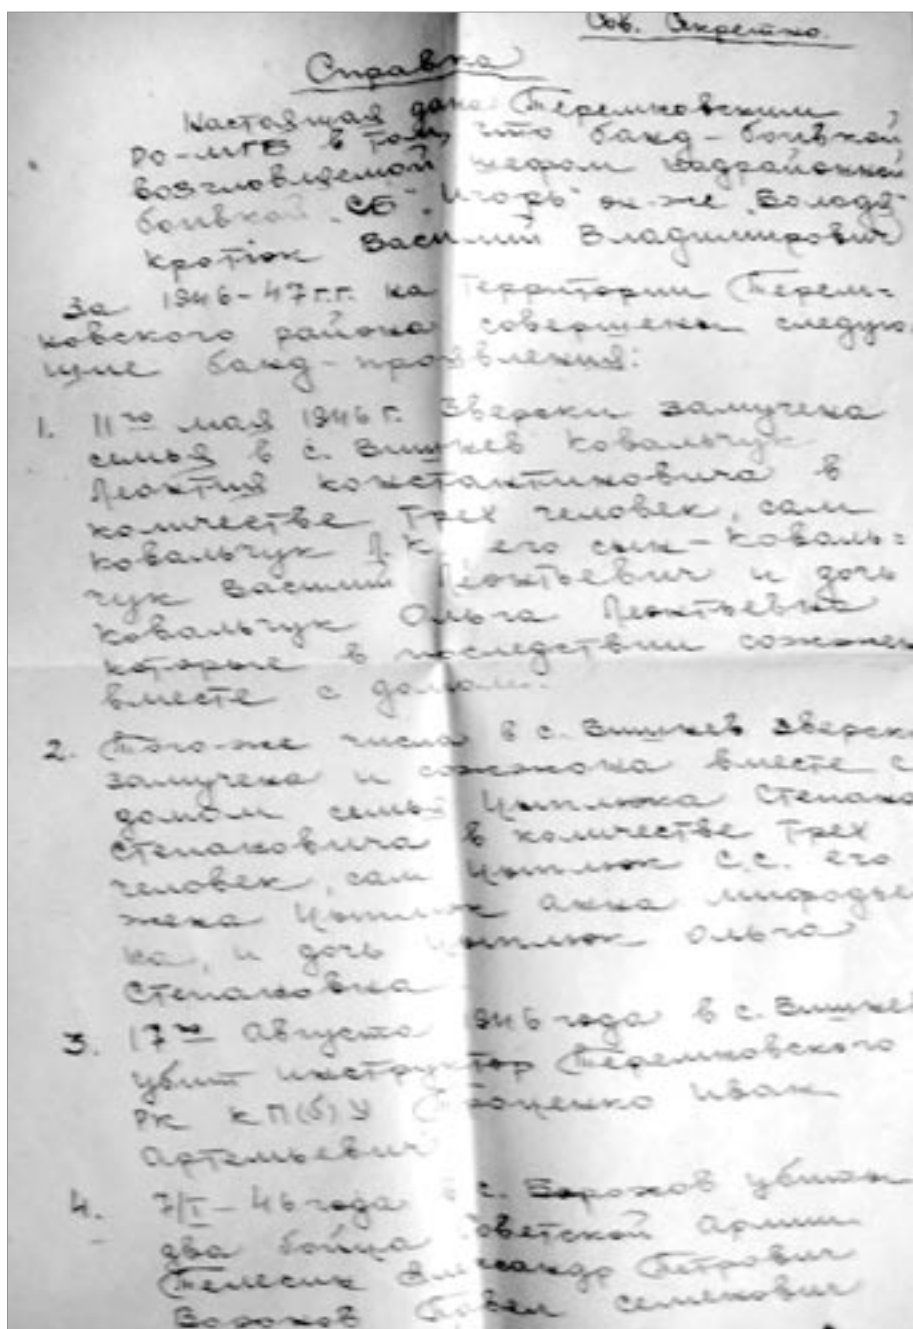 Сов. Секретно.
Справка
Настоящая дана Теремновским
РО-МГБ в том, что банд-боевкой
возглавляемой шефом надрайонной
боевкой „СБ" „Игорь" он-же „Володя"
Кротюк Василий Владимирович
За 1946-47 г.г. на территории Терем=
новского района совершены следую
щие банд-проявления:
1. 11го мая 1946 г. Зверски замучена
семья в с. Вишнев Ковальчук
Леонтия Константиновича в
количестве трех человек, сам
Ковальчук Л.К. его сын-Коваль=
чук Василий Леонтьевич и дочь
Ковальчук Ольга Леонтьевна
которые в последствии сожжен
вместе с домом.
2. Того-же числа в с. Вишнев зверск
замучена и сожжена вместе с
домом семья Цыплюка Степана
Степановича в количестве трех
человек, сам Цыплюк С.С. его
жена Цыплюк Анна Мифодье
на, и дочь Цыплюк Ольга
Степановна
3. 17го Августа 1946 года в с. Вишнев
убит инструктор Теремновского
РК КП(б)У Троценко Иван
Артемьевич
4. 7/I-46 года в с. Борохов убиты
два бойца Советской Армии
Телесик Александр Петрович
Ворохов Павел Семенович